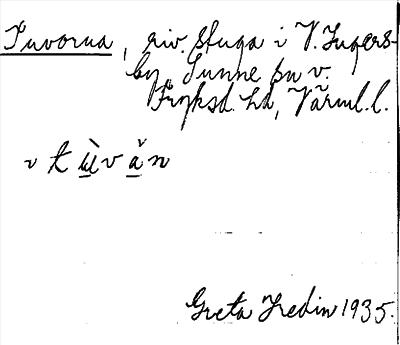 Tuvorna, riv. stuga i V. Ingers-
by, Sunne sn v.
Fryksd. hd, Värml. l.
v t ùv ă n
Greta Hedin 1935.